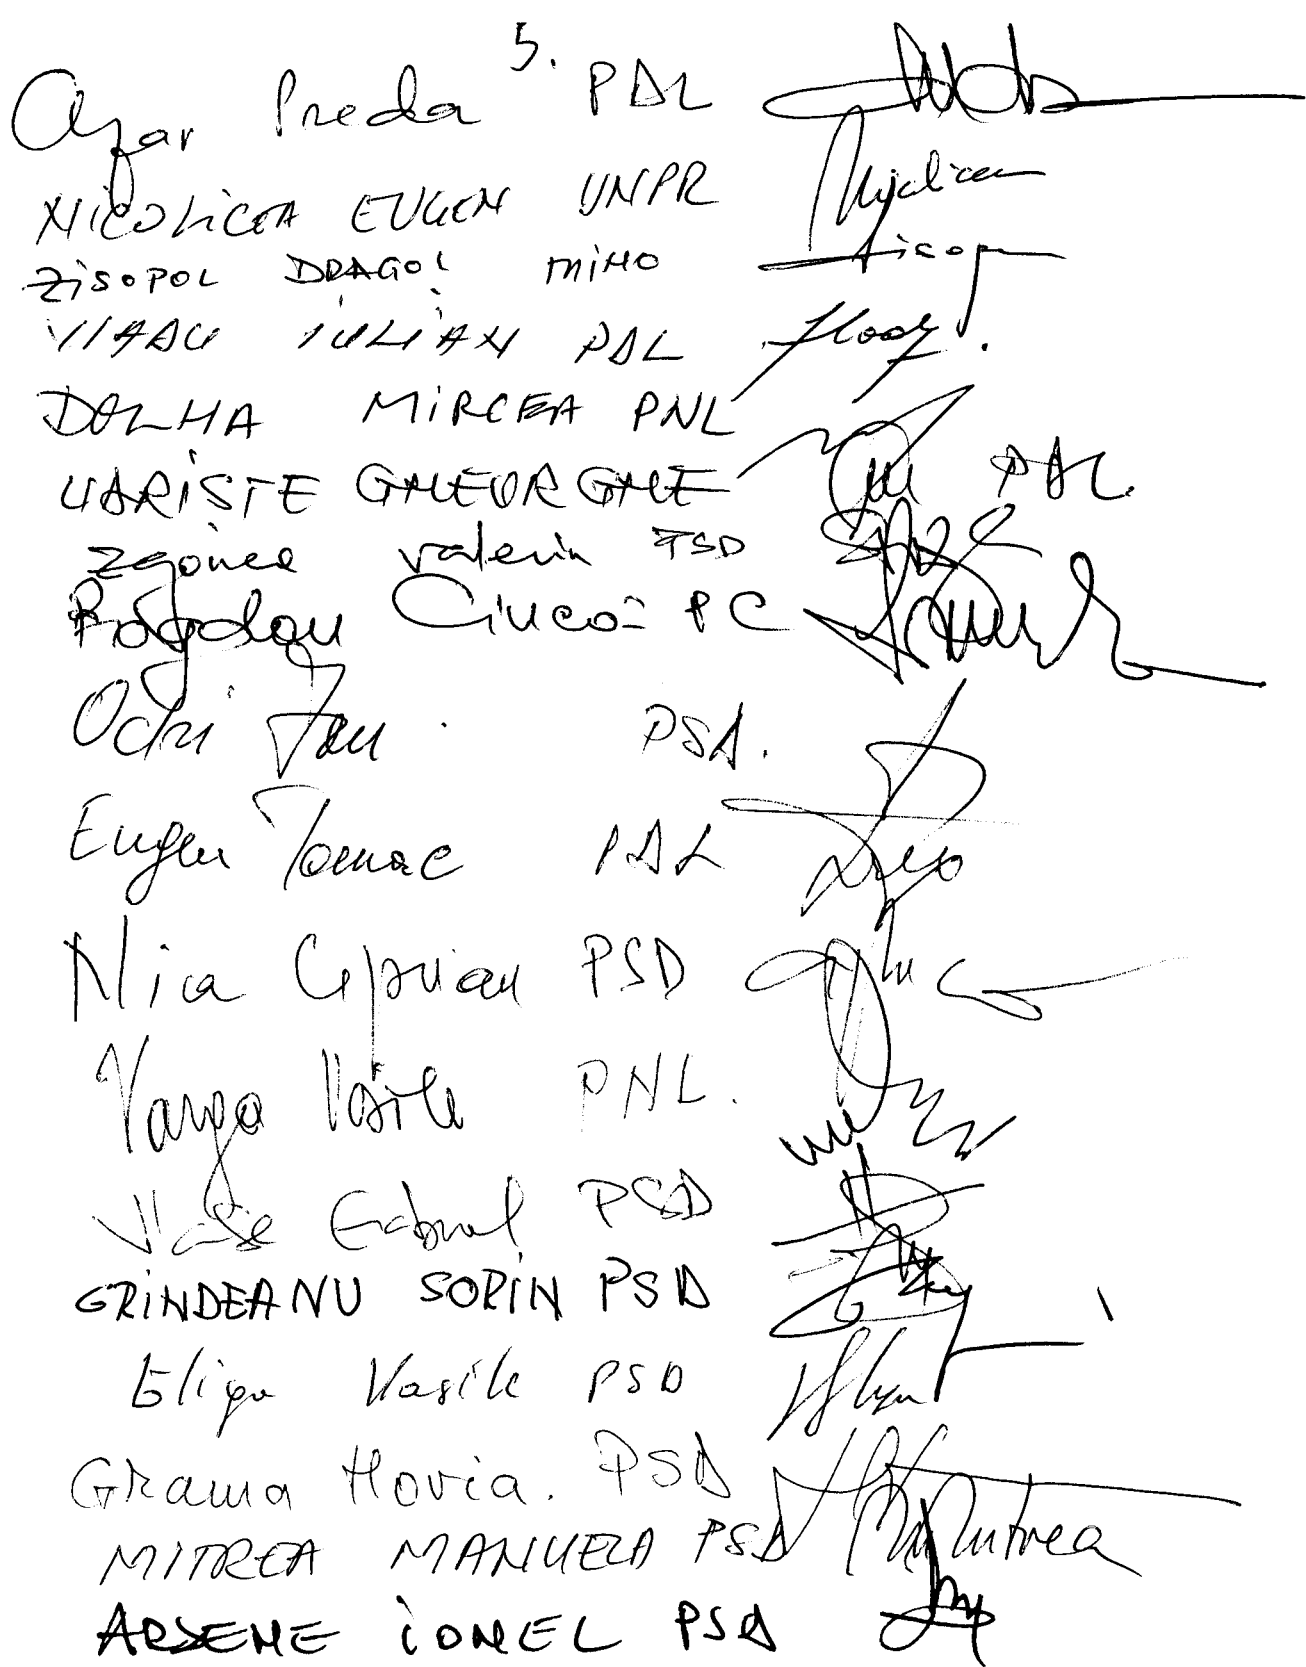 5.
Preda PDL
NICOLICEA EUGEN UNPR
ZISOPOL DRAGOȘ MINO
VLADU IULIAN PDL
DOLHA MIRCEA PNL
VARISTE GHEORGHE PDL
Zgonea Valeriu PSD
Bogdan Ciucă PC
PSD.
Eugen Tomac PDL
Nica Ciprian PSD
Varga Vasile PNL.
Vlase Gabriel PSD
GRINDEANU SORIN PSD
Vasile PSD
Grama Horia. PSD
MITREA MANUELA PSD Mitrea
ARSENE IONEL PSD